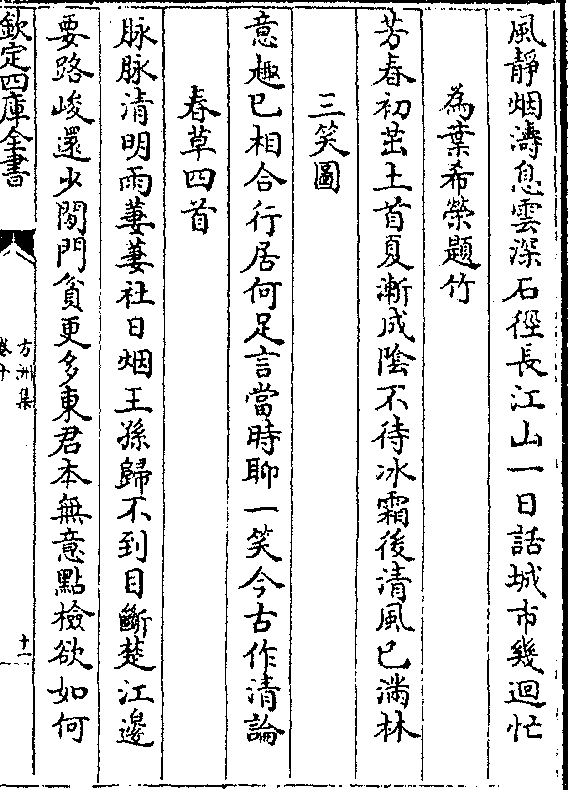 風静烟濤息雲深石徑長江山一日話城市幾迴忙
為葉希榮題竹
芳春初茁土首夏漸成陰不待冰霜後清風已滿林
三笑圖
意趣已相合行居何足言當時聊一笑今古作清論
春草四首
脉脉清明雨萋萋社日烟王孫歸不到目斷楚江邊
要路峻還少閑門貧更多東君本無意點檢欲如何
欽定四庫全書
方洲集
卷十
十一